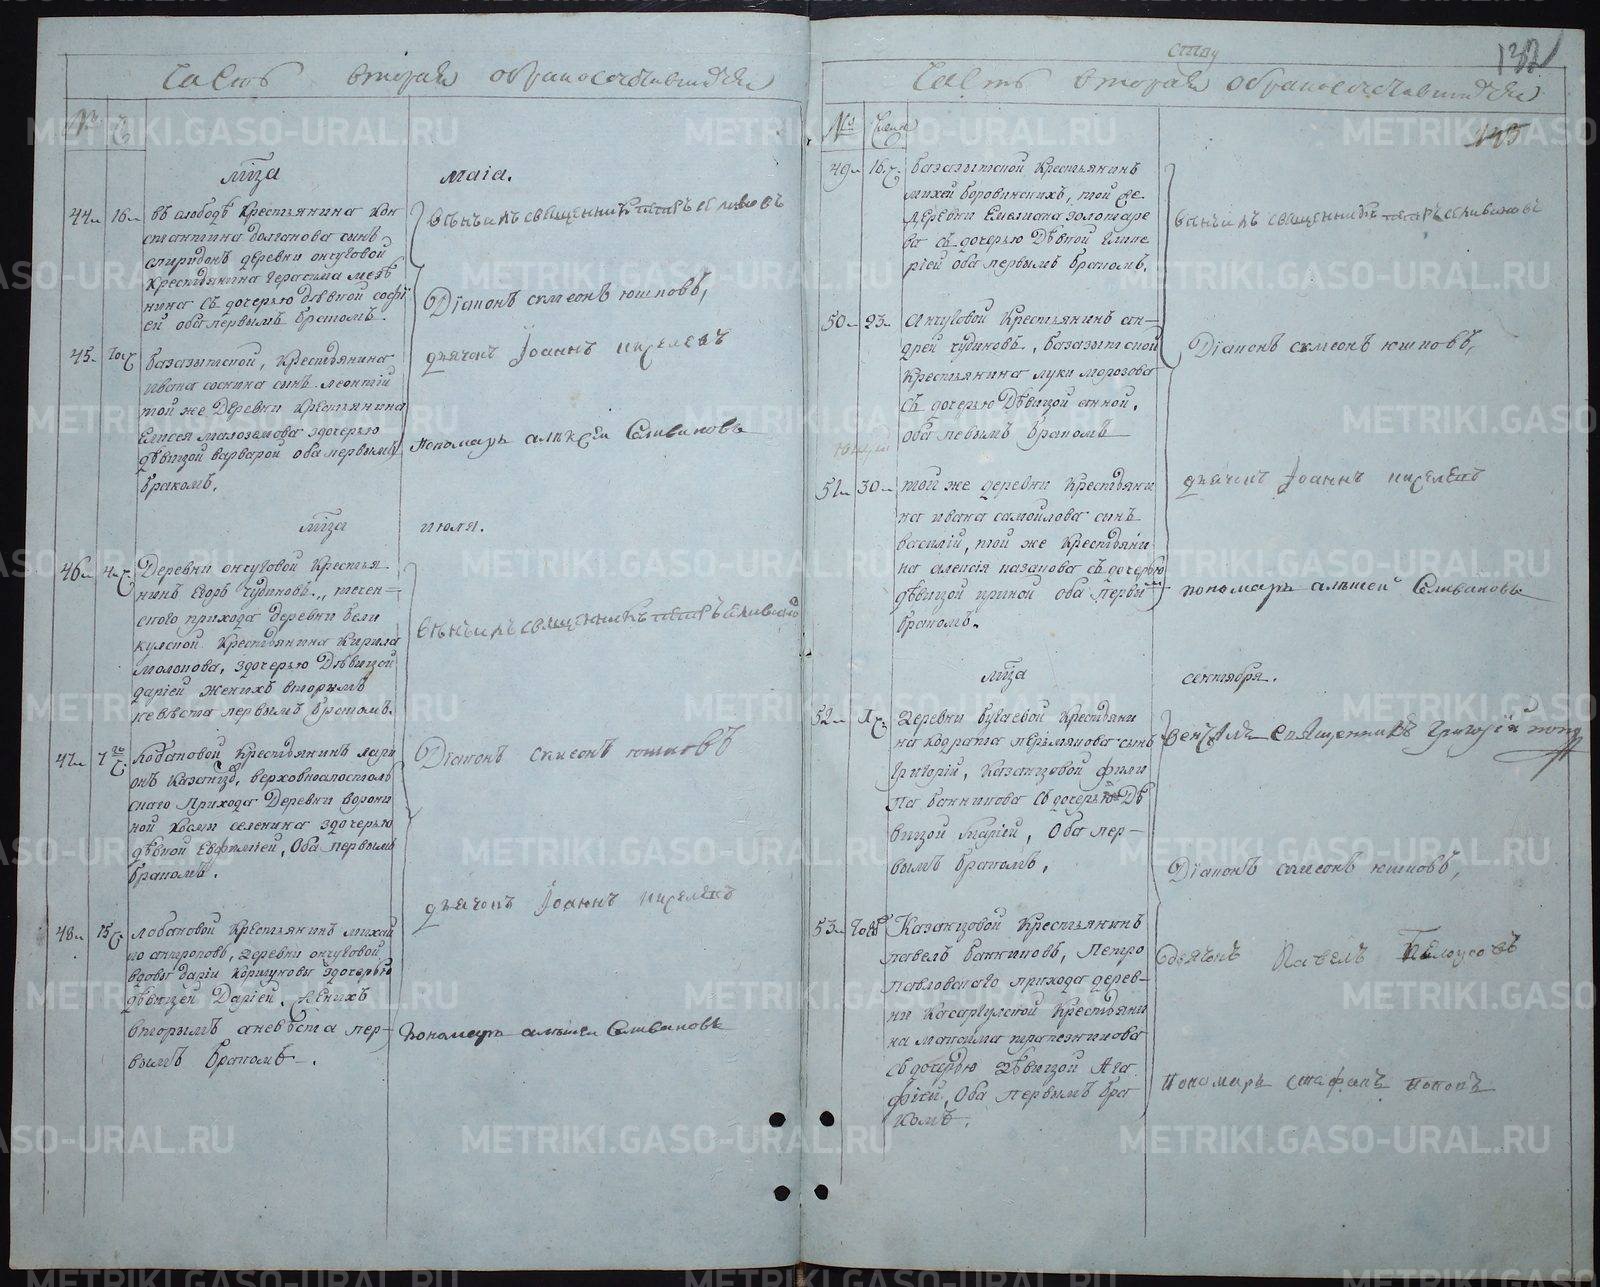 Часть вторая о бракосочетавшихся
№ Ч
мѣсяца маіа.
44 16 въ слободѣ Крестьянина Кон
стантина долганова сынъ
спиридонъ деревни анчуговой
Крестьянина Герасима
нина съ дочерью дѣвкой софі
ей оба первымъ бракомъ.
вѣнчалъ священникъ Петръ селивановъ
Діаконъ симеонъ юшковъ,
45
базазытской, Крестьянина
Ивана соснина сынъ леонтій
той же деревни крестьянина
Елисея малоземова здочерью
дѣвицой варварой оба первымъ
бракомъ.
дьячокъ Іоаннъ киселевъ
пономарь алексѣй Селивановъ
мѣсяца июля.
46 4 Деревни анчуговой Крестья
нинъ Егоръ чудиновъ, течен=
скаго прихода деревни бели
кулской Крестьянина Кирила
молокова, здочерью Дѣвицой
даріей женихъ вторымъ
невѣста первымъ бракомъ.
вѣнчалъ священникъ Петръ селивановъ
47 7 Лобановой Крестьянинъ лари
онъ Казанцовъ, верховноапостоль
скаго Прихода Деревни ворони
ной Козми селенина здочерью
дѣвкой Евфиміей, Оба первымъ
бракомъ.
Діаконъ симеонъ юшковъ
дьячокъ Іоаннъ киселевъ
48 15 лобановой Крестьянинъ михай
ло антроповъ, деревни анчуговой
вдовы даріи коршуновы здочерью
дѣвицей Даріей. Женихъ
вторымъ аневѣста пер-
вымъ бракомъ.
пономарь алексѣй Селивановъ
132
Часть вторая о бракосочетавшихся
№ Числа
49 16 базазытской Крестьянинъ
михей боровинскихъ, той же
деревни Емелиана золотаре
ва съ дочерью Дѣвкой Глике
ріей оба первымъ бракомъ.
вѣнчалъ священникъ Петръ селивановъ
50 23 Анчуговой Крестьянинъ ан-
дрей чудиновъ, базазытской
Крестьянина луки морозова
съ дочерью Дѣвицой анной,
оба певымъ бракомъ
Діаконъ симеонъ юшковъ,
51 30 той же деревни Крестьяни
на ивана самойлова сынъ
василій, той же Крестьяни
на алексія казакова съ дочерью
дѣвицой ириной оба первы
бракомъ.
дьячокъ Іоаннъ киселевъ
пономарь алексей Селивановъ
мѣсяца сентября.
52 деревни бугаевой Крестьяни
на кодрата пермякова сынъ
григорій, Казанцовой фили
па банникова съ дочерью Дѣ
вицой Маріей, Оба пер-
вымъ бракомъ,
Венчалъ священникъ Григорій попо
Діаконъ симеонъ юшковъ,
53 Казанцовой Крестьянинъ
павелъ банниковъ, Петро
павловскаго прихода дерев-
ни касаргулской Крестьяни
на максима трапезникова
съ дочерью дѣвицой Ага
фіей, Оба первымъ бра
комъ.
дьячокъ Павелъ Белоусовъ
пономарь стафанъ попов
METRIKI.GASO-URAL.RU